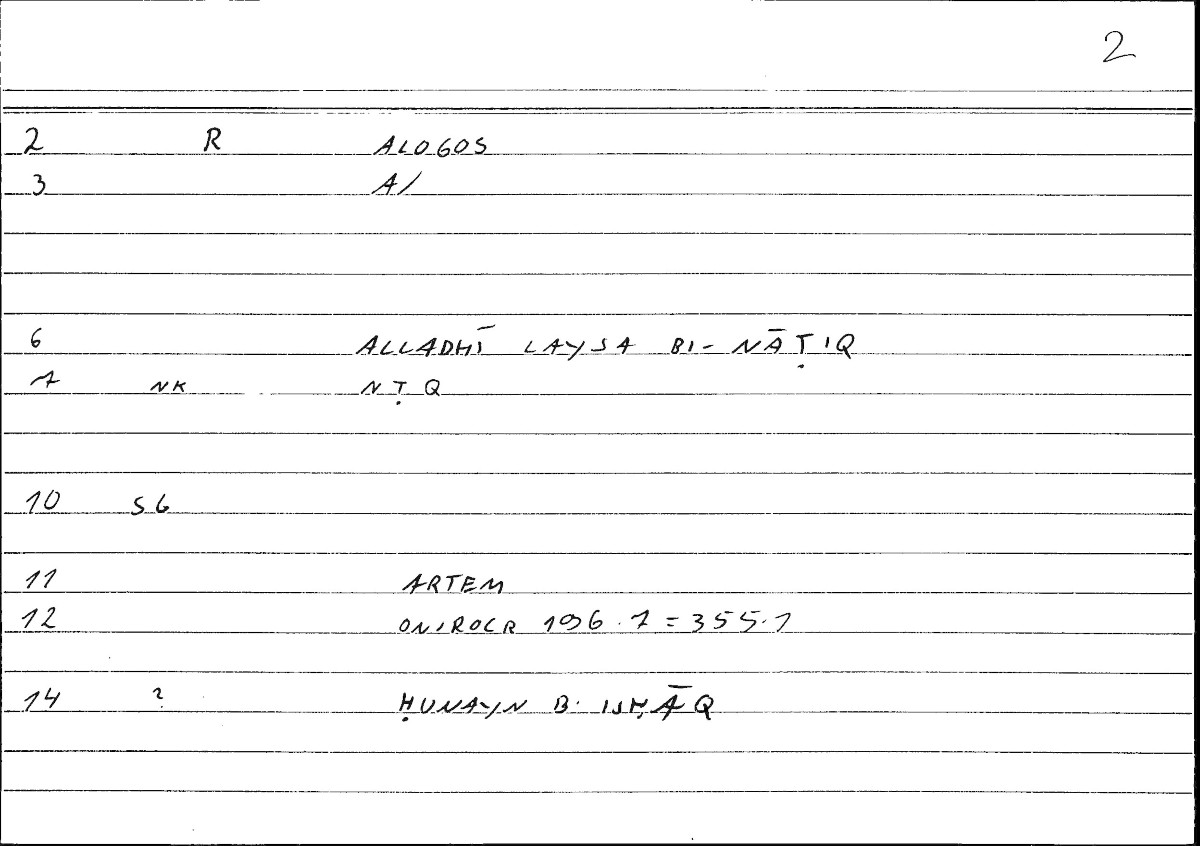 2
2 R ALOGOS
3 A/
6 ALLADHĪ LAYSA BI- NĀṬIQ
7 NK NṬQ
10 SG
11 ARTEM
12 ONIROCR 196.7=355.1
14 ? ḤUNAYN B. ISḤĀQ